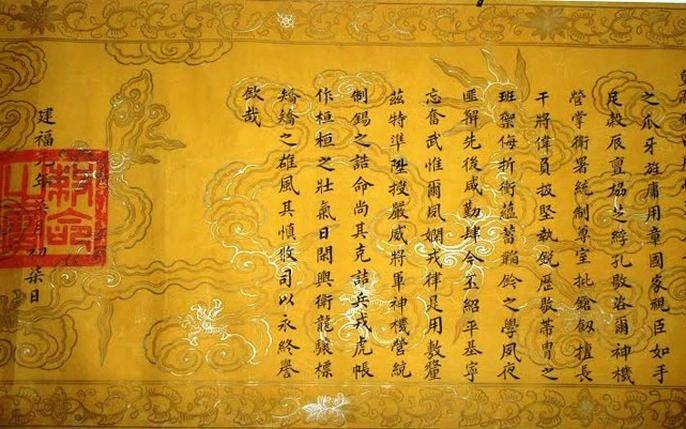 之爪牙旌庸用章國家視臣如手
足穀辰亶協芝綍孔敭咨爾神機
營掌衛署統制尊室批鎗劔擅長
干將偉負披堅執銳歷敭胄之
班禦侮折衝蘊蓄韜鈐之學夙夜
匪懈先後咸勤肆今丕紹平基寧
忘奮武惟爾夙嫻戎律是用敷釐
茲特準陞授嚴威將軍神機營統
制錫之誥命尚其克詰兵戎虎帳
作桓桓之壯氣日閑輿衛龍驤標
矯矯之雄風其慎攸司以永終譽
欽哉
建福元年月初柒日
制命之寶